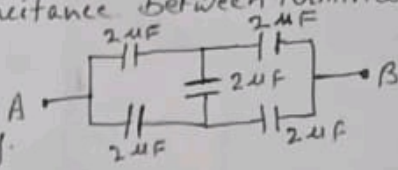 citance between
2 μF
2 μF
2 μF
A
B
2 μF
2 μF